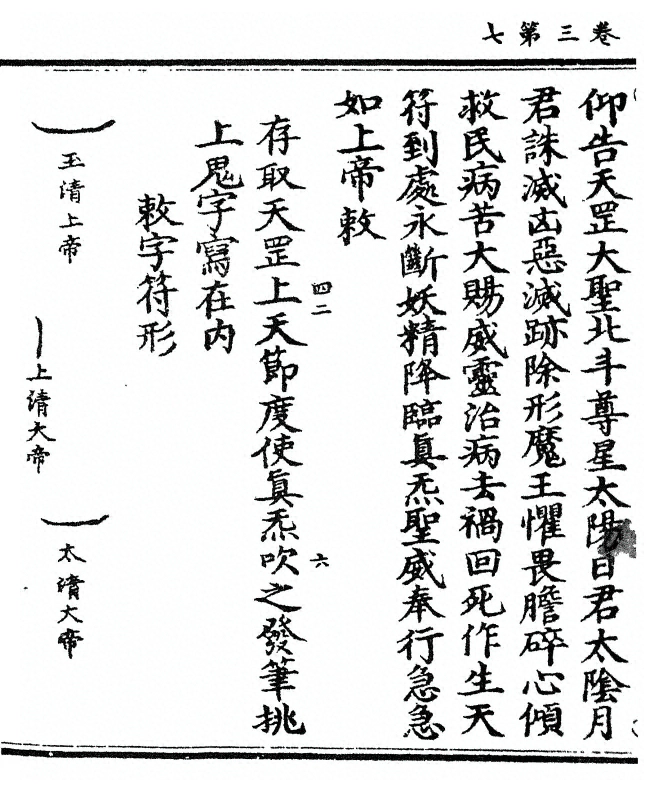 卷三第七
仰告天罡大聖北斗尊星太陽日君太陰月
君誅滅凶惡滅跡除形魔王懼畏膽碎心傾
救民病苦大賜威靈治病去禍回死作生天
符到處永斷妖精降臨眞炁聖威奉行急急
如上帝敕
存取天罡上天節度使眞炁吹之發筆挑
四二
六
上鬼字寫在内
敕字符形
玉清上帝
上清大帝
太清大帝